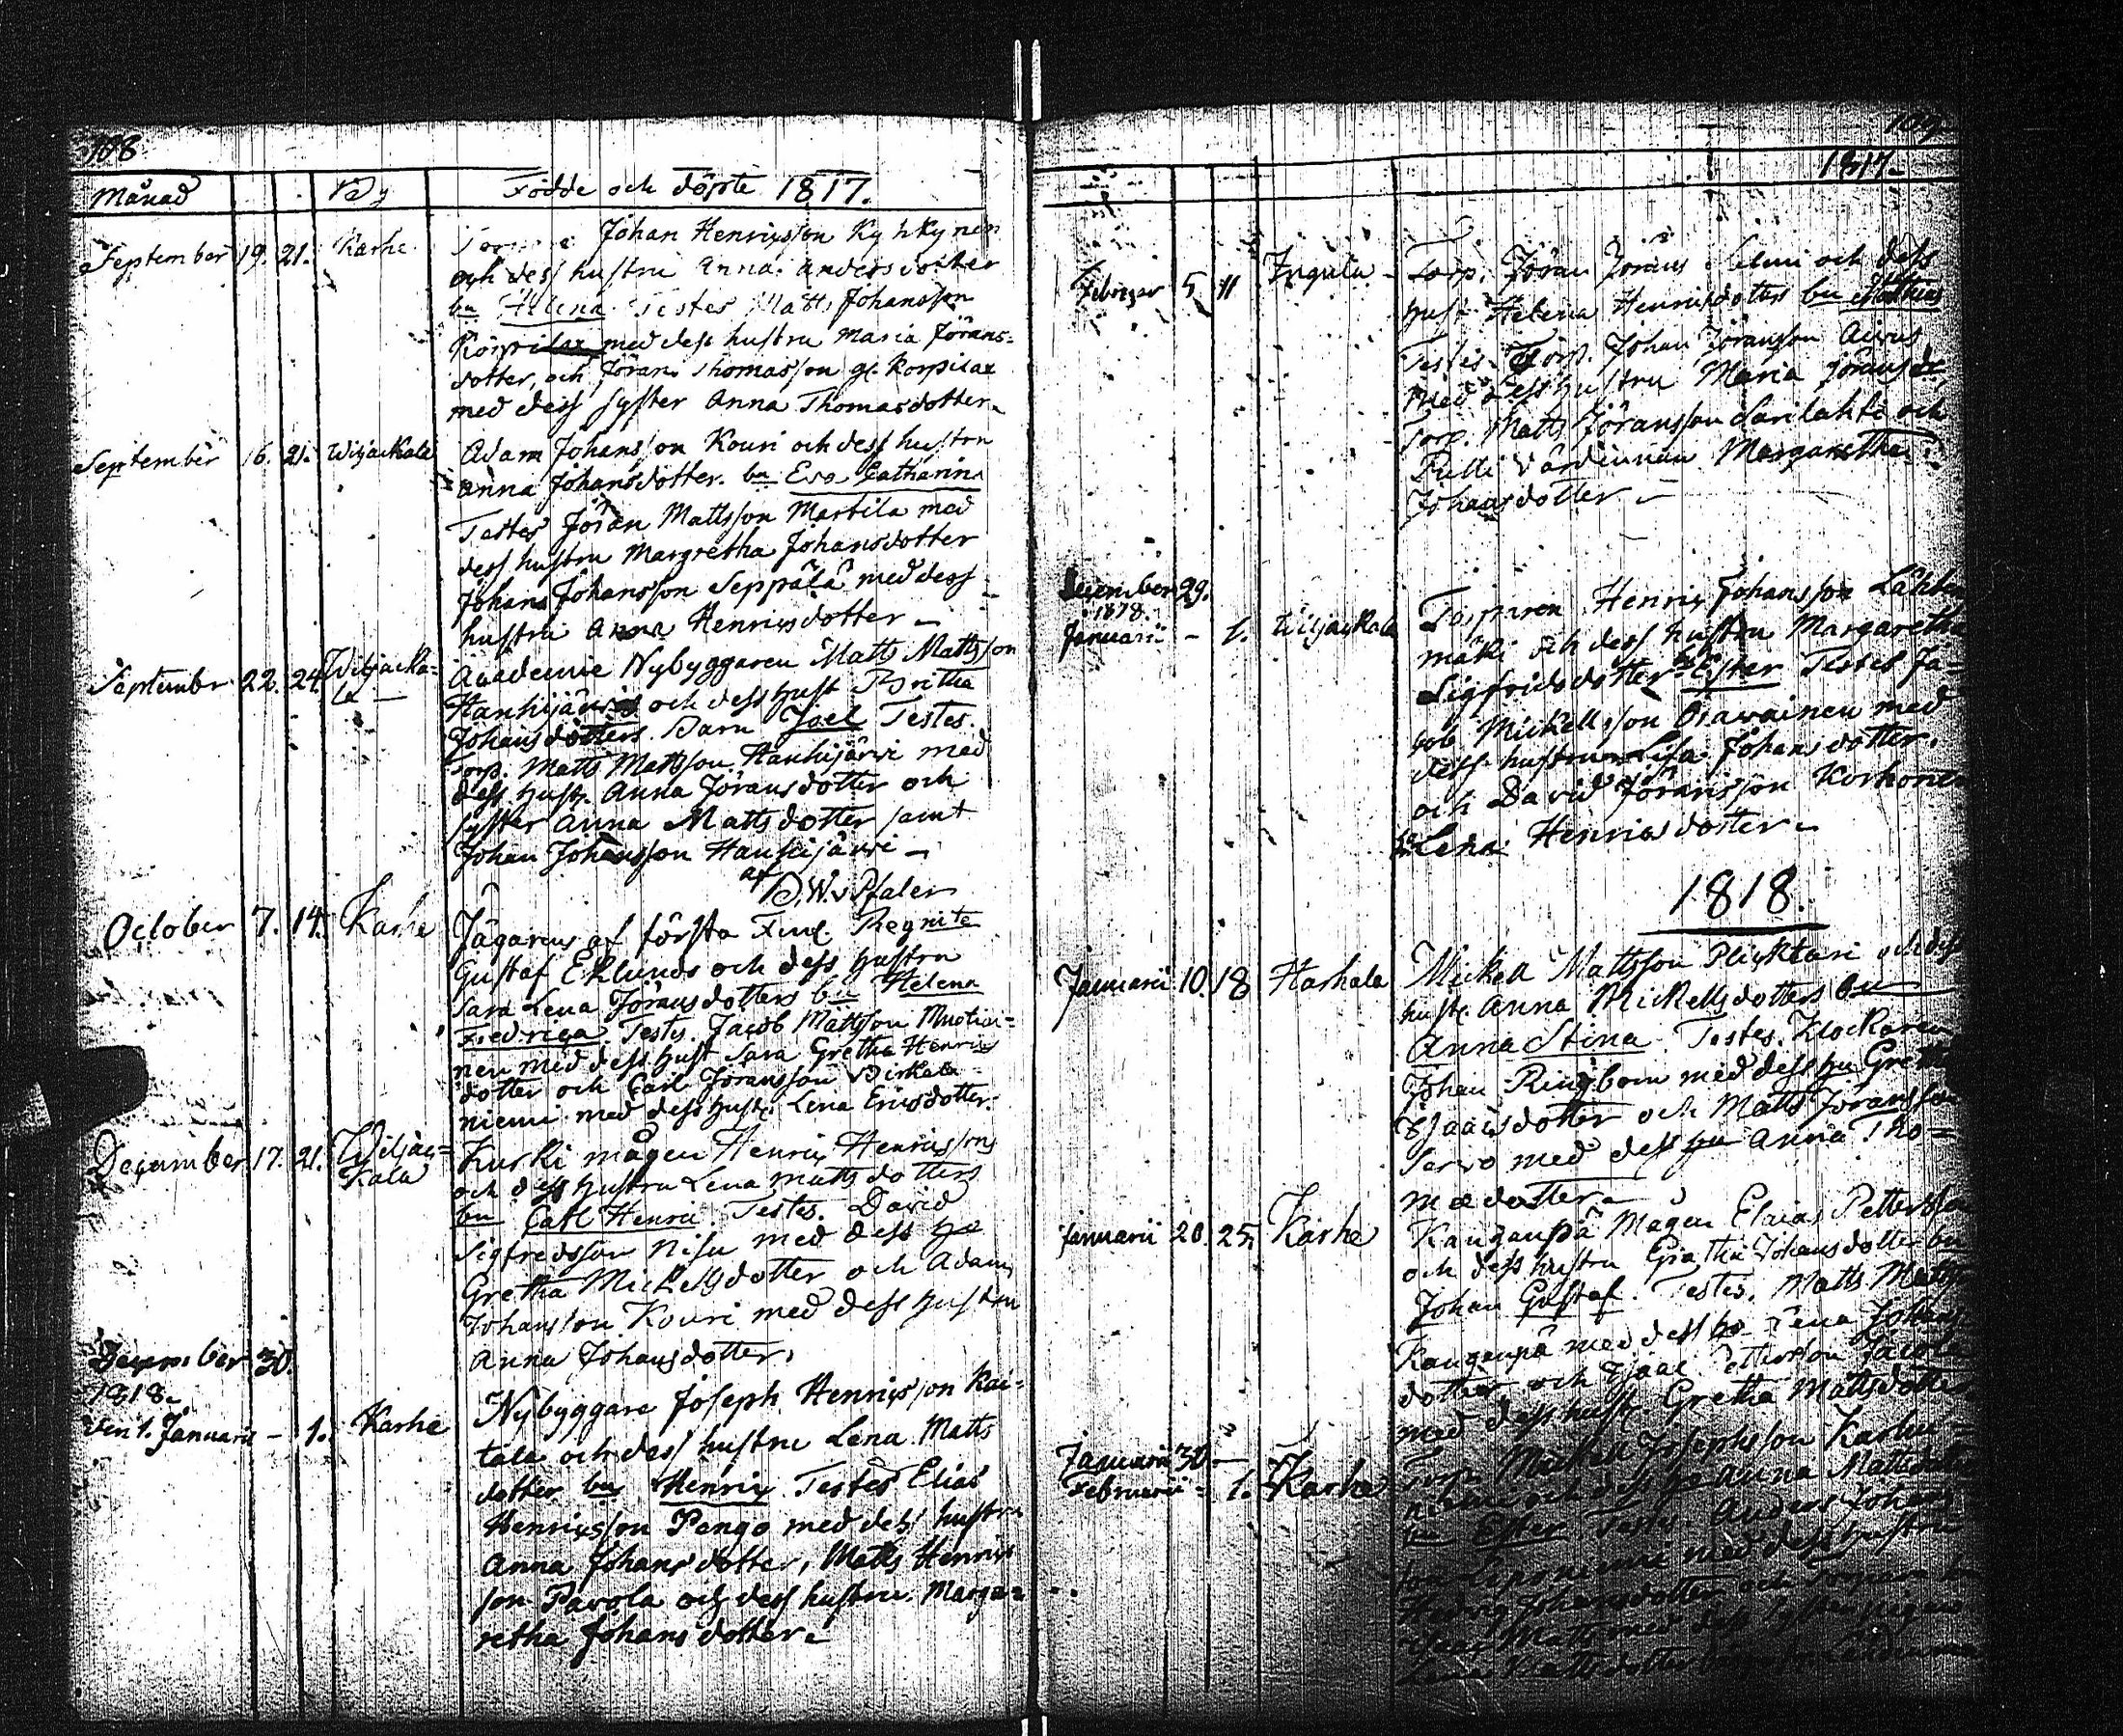 108
Månad By Födde och döpte 1817.
September 19. 21. Karhe Johan Henricsson Kyhkynen
och dess hustru Anna Andersdotter
bn Helena Testes Matts Johansson
Korpilax med dess hustru Maria Jörans=
dotter, och Jöran Thomasson gl. Korpilax
med dess syster Anna Thomasdotter
September 16. 21. Wiljackala Adam Johansson Kouri och dess hustru
Anna Johansdotter. bn Eva Catharina
Testes Jöran Mattsson Martila med
dess hustru Margretha Johansdotter
Johan Johansson Seppälä med dess
hustru Anna Henricsdotter
September 22. 24. Wiljacka=
la
Academie Nybyggaren Matts Mattsson
Hanhijärvis och dess hust Britha
Johansdotters Barn Joel Testes.
Torp. Matts Mattsson Hanhijärvi med
dess hust. Anna Jöransdotter och
syster Anna Mattsdotter samt
Johan Johansson Hanhijärvi
af B.W. v Pfaler
October 7. 14. Karhe Jägarens af första Finl. Regnite
Gustaf Eklunds och dess hustru
Sara Lena Jöransdotters bn Helena
Fredrica. Testes. Jacob Mattsson Muotiai=
nen med dess hust Sara Gretha Henrics
dotter och Carl Jöransson Birkala=
niemi med dess hust. Lena Ericsdotter.
December 17. 21. Wiljac=
kala
Kurki mågen Henric Henricssons
och dess hustru Lena Mattsdotters
bn Carl Henric. Testes. David
Sigfredsson Nisu med dess hu
Gretha Mickelsdotter och Adam
Johansson Kouri med dess hustru
Anna Johansdotter.
December 30.
1818.
den 1. Januarii - 1. Karhe
Nybyggare Joseph Henricsson Kai=
tala och dess hustru Lena Matts
dotter bn Henric Testes Elias
Henricsson Pengo med dess hustru
Anna Johansdotter, Matts Henrics
son Pavola och dess hustru. Marga=
retha Johansdotter
109
1817.
5 11 Torp. Jöran Jörans Selmi och dess
hust Helena Henricsdotters bn Mattias
Testes Torp. Johan Jöransson
med dess hustru Maria Jöransdr
Torp. Matts Jöransson Sarilahti och
Pulli Värdinnan Margaretha
Johansdotter
December 29.
1818.
Januarii - 1. Wiljackala
Torparen Henric Johansson Lahten
mäki och dess hustru Margaretha
Sigfridsdotter bn Ester Testes Ja=
cob Mickellsson Osavainen med
dess hustru Lisa Johansdotter.
och David Jöransson Korhonen
hu Lena Henricsdotter
1818.
Januarii 10. 18 Harhala Mickell Mattsson och dess
hust. Anna Mickellsdotters bn
Anna Stina Testes. Klockaren
Johan Ringbom med dess hu Gretha
Isaacsdotter och Matts Jöransson
Sarvo med dess hu Anna Tho=
masdotter
Januarii 20. 25. Karhe Kanganpä Mågen Elias Pettersson
och dess hustru Gretha Johansdotter bn
Johan Gustaf. Testes. Matts Mattsson
Kangenpä med dess hu Lena Johans
dotter och Isaac Pettersson
med dess hust. Gretha Mattsdotter
Januarii 30.
Februarii - 1. Karhe
Torp. Mickell Josephsson Karhu=
niemi och dess hu Anna Mattsdotter
bn Ester Testes. Anders Johans
son med dess hustru
Hedvig Johansdotter och Torparen
Matts med dess syster pigan
Lena Mattsdotter